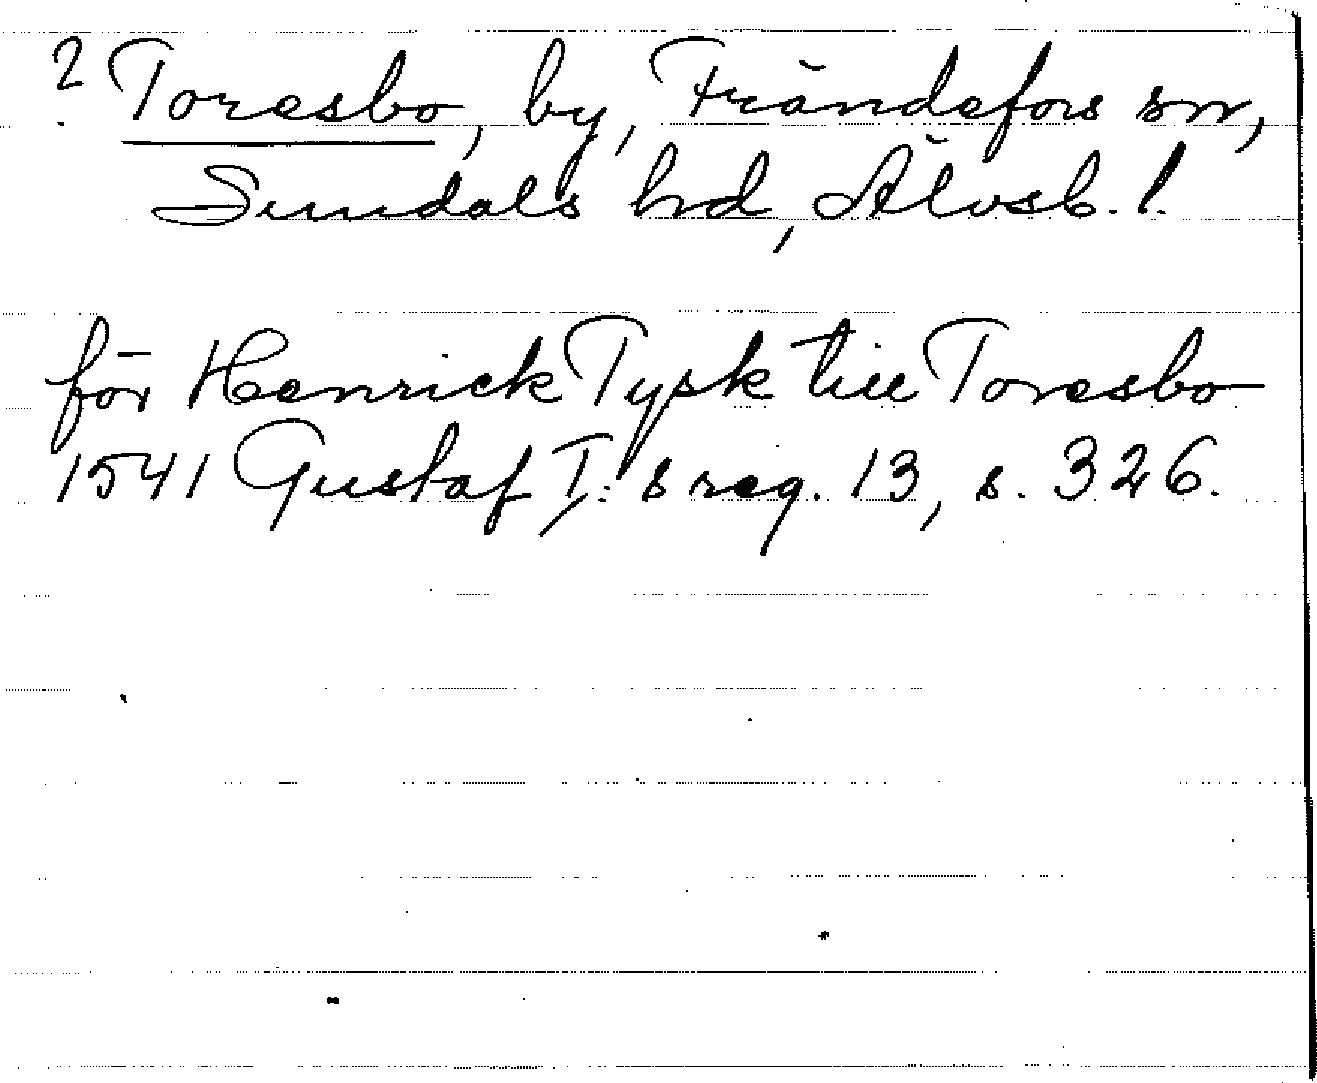 ? Toresbo, by, Frändefors sn,
Sundals hd, Älvsb. l.
för Henrick Tysk till Toresbo
1541 Gustaf I:s reg. 13, s. 326.